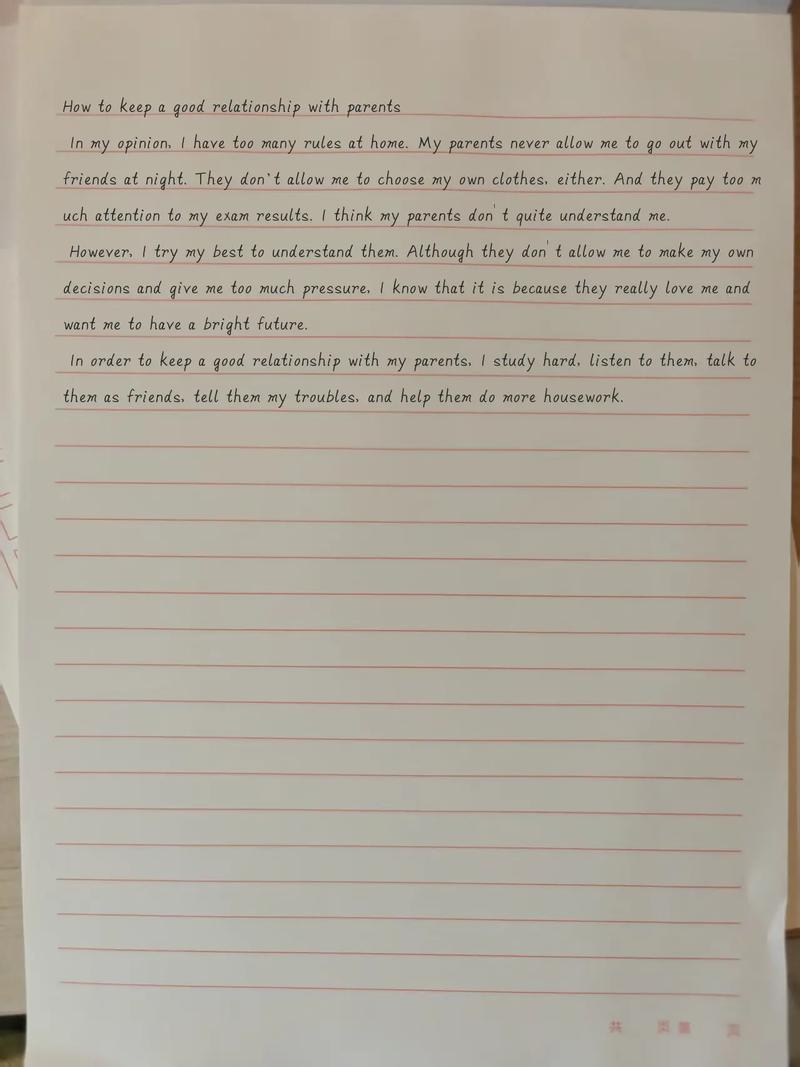 How to keep a good relationship with parents
In my opinion, I have too many rules at home. My parents never allow me to go out with my
friends at night. They don't allow me to choose my own clothes, either. And they pay too m
uch attention to my exam results. I think my parents don't quite understand me.
However, I try my best to understand them. Although they don't allow me to make my own
decisions and give me too much pressure, I know that it is because they really love me and
want me to have a bright future.
In order to keep a good relationship with my parents, I study hard, listen to them, talk to
them as friends, tell them my troubles, and help them do more housework.
共 页第 页